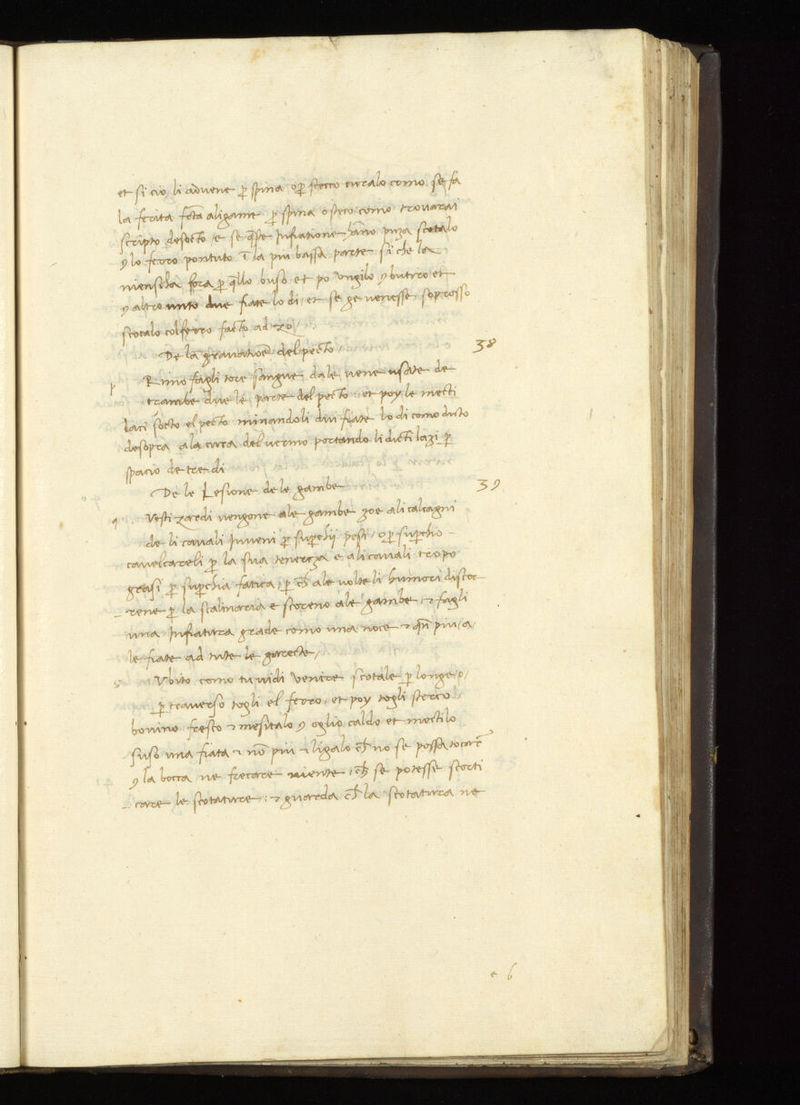 et si cio li advene ꝑ spina oꝑ stecco curalo como se fa
la ferita fc̄ta a ligame ꝑ spina o steco como trovarai
scripto desocto e se q̄ste Infiatione hāno puza scotalo
ꝯ lo ferro pontuto ī la piu bassa parte si che la
mensila ꝑ q̄llo buso et po ungilo ꝯ butiro et
ꝯ altro unto due fiate lo di / et se ge venesse soprosso
scotalo col ferro facto ad zo /
De la gravatiōe del pecto / 38
p Rimo fagli tore sangue da le vene usate de
trambe due le parte del pecto et poy le mecti
laci socto el pecto minandoli dui fiate lo di como dicto
desopra a la cura del vermo portando li dicti lazi ꝑ
spacio de tre di
De le Lesione de le gambe 39
q Vesti zardi vengone ale gambe zoe ali calcagni
de li cavali Inveni ꝑ supchij pesi / oꝑ supchio
cavelcareli ꝑ la sua tenereza e ali cavali tropo
grasi ꝑ supchia fatica / ꝑ ch̄ ale volte li humori discor
rene ꝑ la scalmaria e scoreno ale gambe / ⁊ fagli
una Infiatura grāde como una noce ⁊ q̄n piu / a
le fiate ad tute le garecte /
s Vbito como tu vidi venire scotale ꝑ longo / o /
ꝑ traverso togli el ferro / et poy togli sterco
bovino fresco ⁊ mesitalo ꝯ oglio caldo et mectilo
suso una fiata ⁊ nō piu ⁊ ligalo ch̄ no se possa tocar
ꝯ la bocca ne frecare niente / ch̄ se potesse scorti
care le scotature / ⁊ guarda ch̄ la scotatura ne
e 6